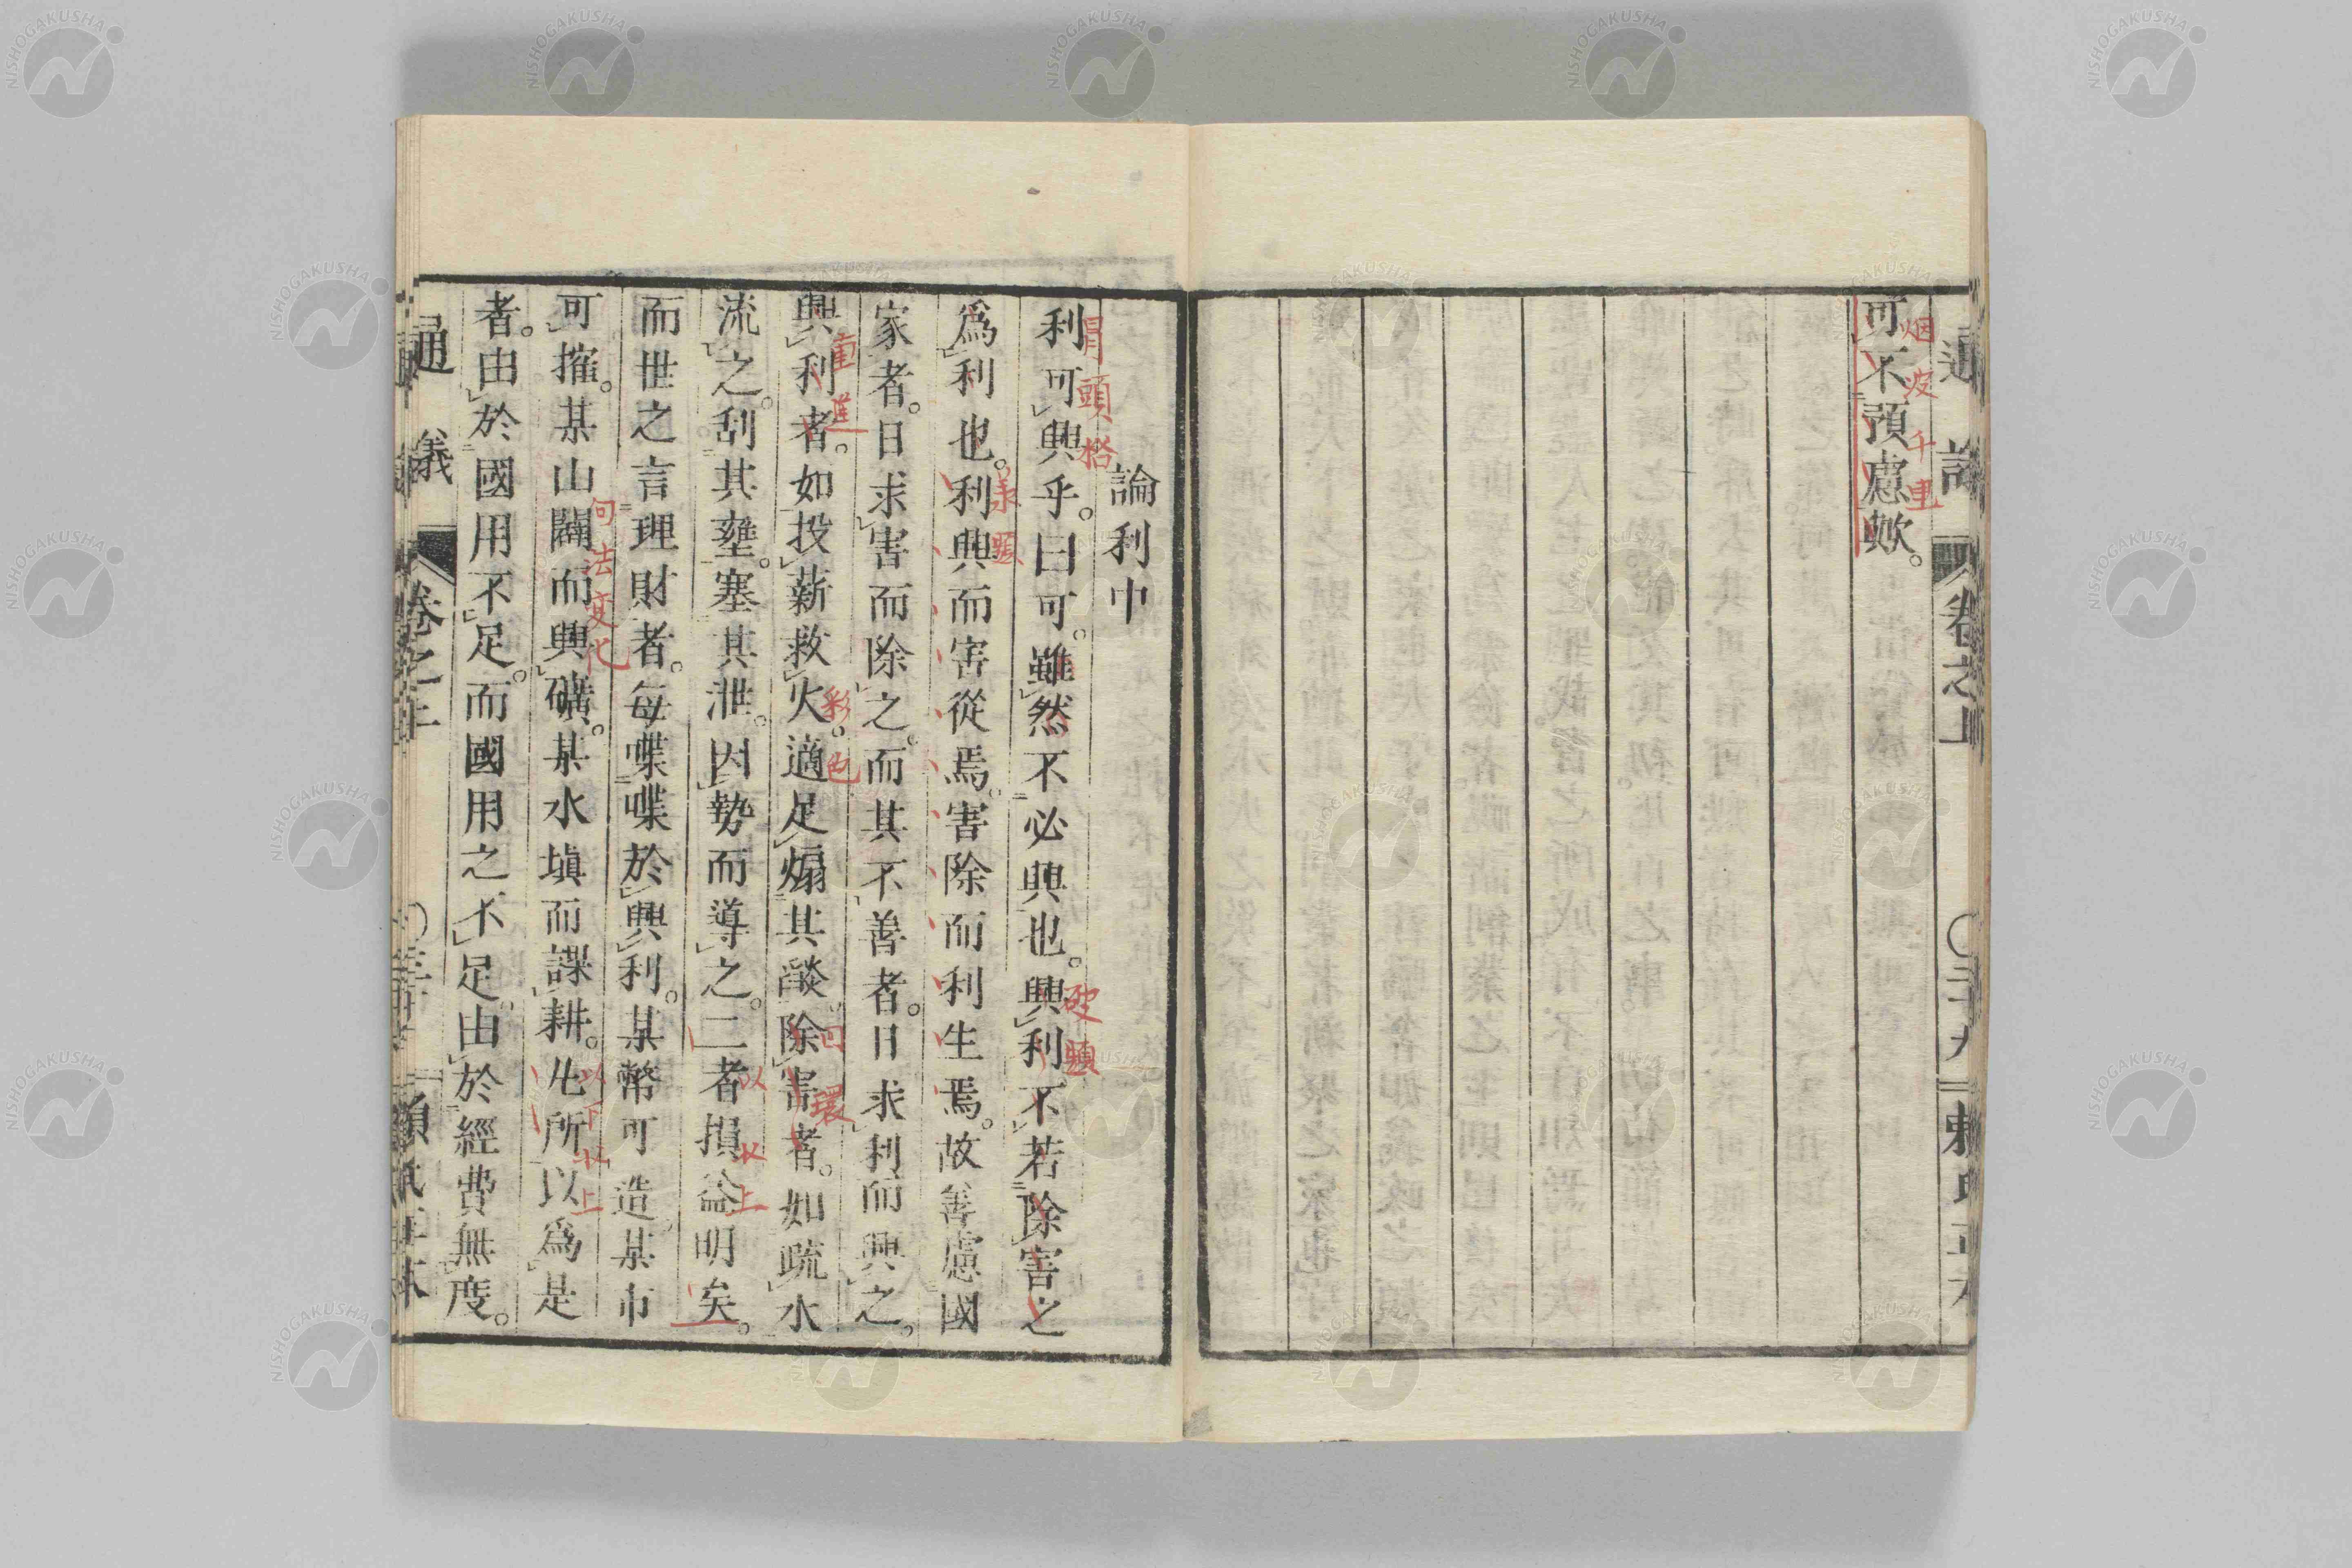 通議 卷之上 〇三十九 頼氏正本
可不預慮歟。
烟波千里
論利中
利可興乎。曰可。雖然不必興也。興利不若除害之
冒頭格
破題
爲利也。利興而害從焉。害除而利生焉。故善慮國
承題
家者。日求害而除之。而其不善者。日求利而興之。
興利者。如投薪救火。適足煽其燄。除害者。如疏水
彩色
回環
流之。刮其壅。塞其泄。因勢而導之。二者損益明矣。
以
上
而世之言理財者。每喋喋於興利。某幣可造。某巿
可搉。某山闢而興礦。某水塡而謀耕。凡所以爲是
句法变化
以下
上
者。由於國用不足。而國用之不足。由於經費無度。
通議 卷之上
NISHOGAKUSHA